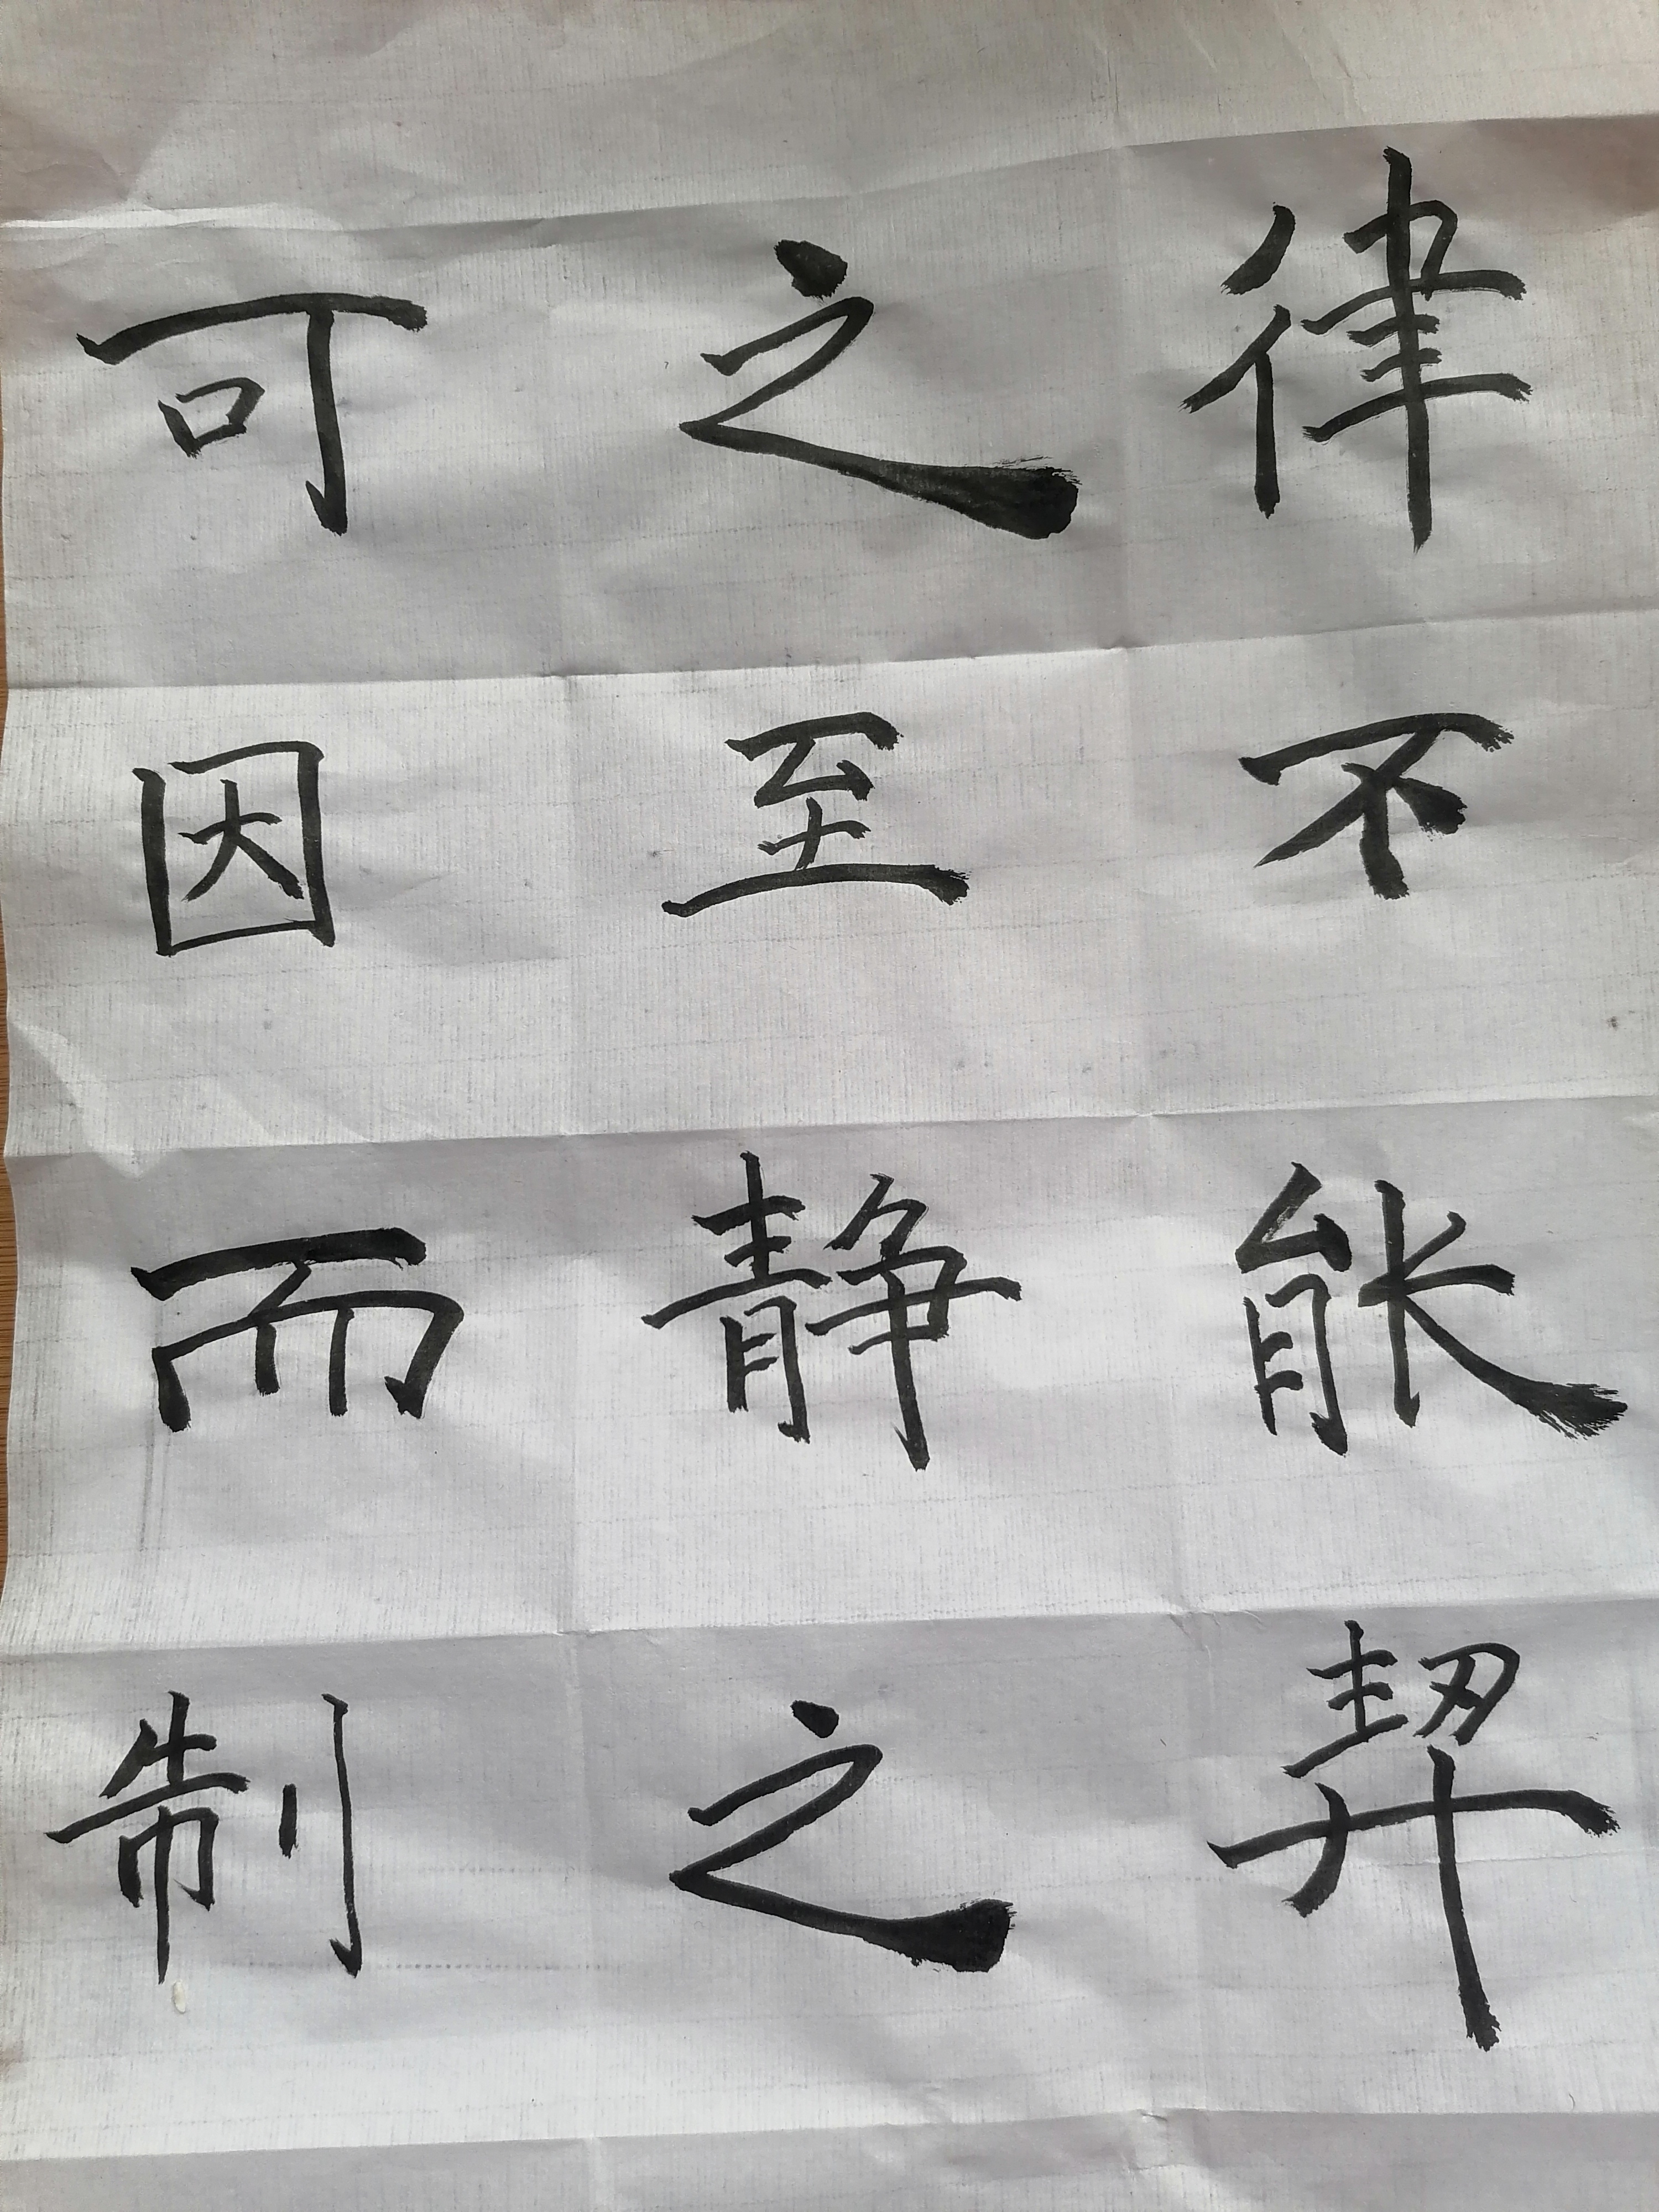 可因而制
之至静之
律不能契